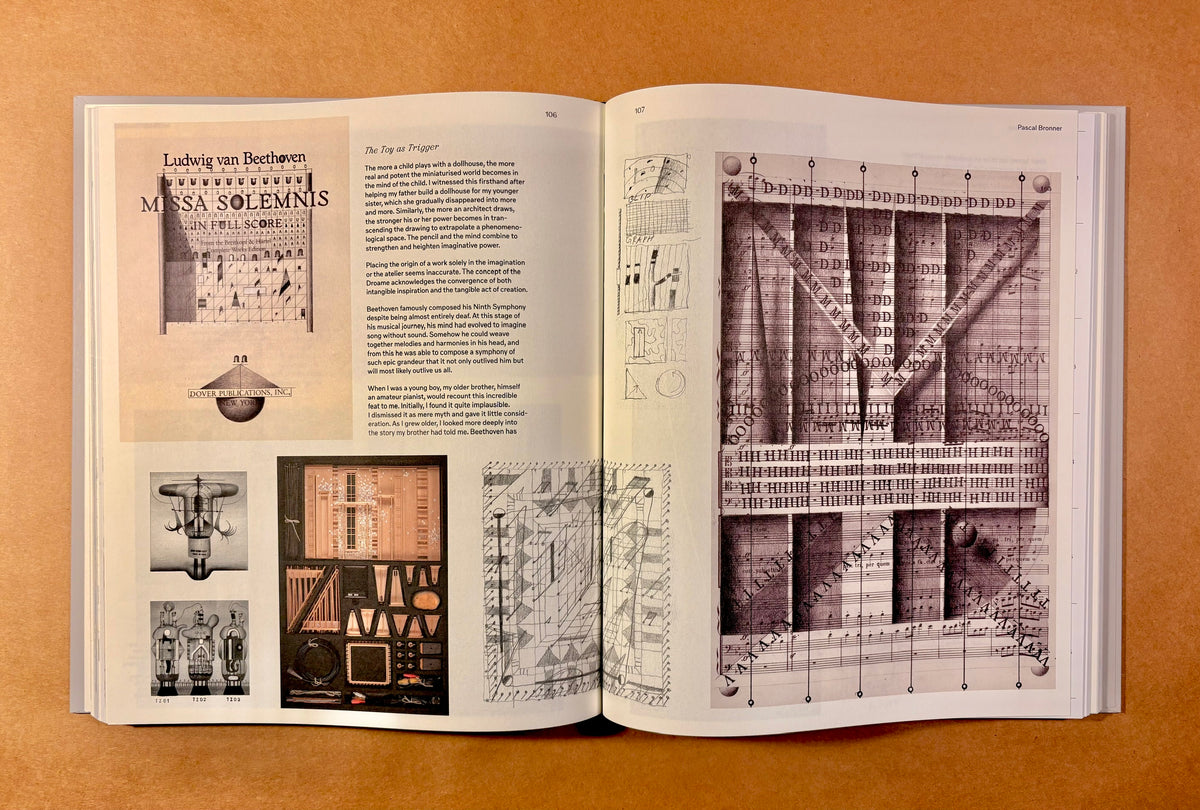 106
107
Pascal Bronner
Ludwig van Beethoven
MISSA SOLEMNIS
IN FULL SCORE
From the Breitkopf & Härtel
DOVER PUBLICATIONS, INC.
NEW YORK
The Toy as Trigger
The more a child plays with a dollhouse, the more
real and potent the miniaturised world becomes in
the mind of the child. I witnessed this firsthand after
helping my father build a dollhouse for my younger
sister, which she gradually disappeared into more
and more. Similarly, the more an architect draws,
the stronger his or her power becomes in tran-
scending the drawing to extrapolate a phenomeno-
logical space. The pencil and the mind combine to
strengthen and heighten imaginative power.
Placing the origin of a work solely in the imagination
or the atelier seems inaccurate. The concept of the
Droame acknowledges the convergence of both
intangible inspiration and the tangible act of creation.
Beethoven famously composed his Ninth Symphony
despite being almost entirely deaf. At this stage of
his musical journey, his mind had evolved to imagine
song without sound. Somehow he could weave
together melodies and harmonies in his head, and
from this he was able to compose a symphony of
such epic grandeur that it not only outlived him but
will most likely outlive us all.
When I was a young boy, my older brother, himself
an amateur pianist, would recount this incredible
feat to me. Initially, I found it quite implausible.
I dismissed it as mere myth and gave it little consid-
eration. As I grew older, I looked more deeply into
the story my brother had told me. Beethoven has
1201 1202 1203
GRAPH
tri, per quem